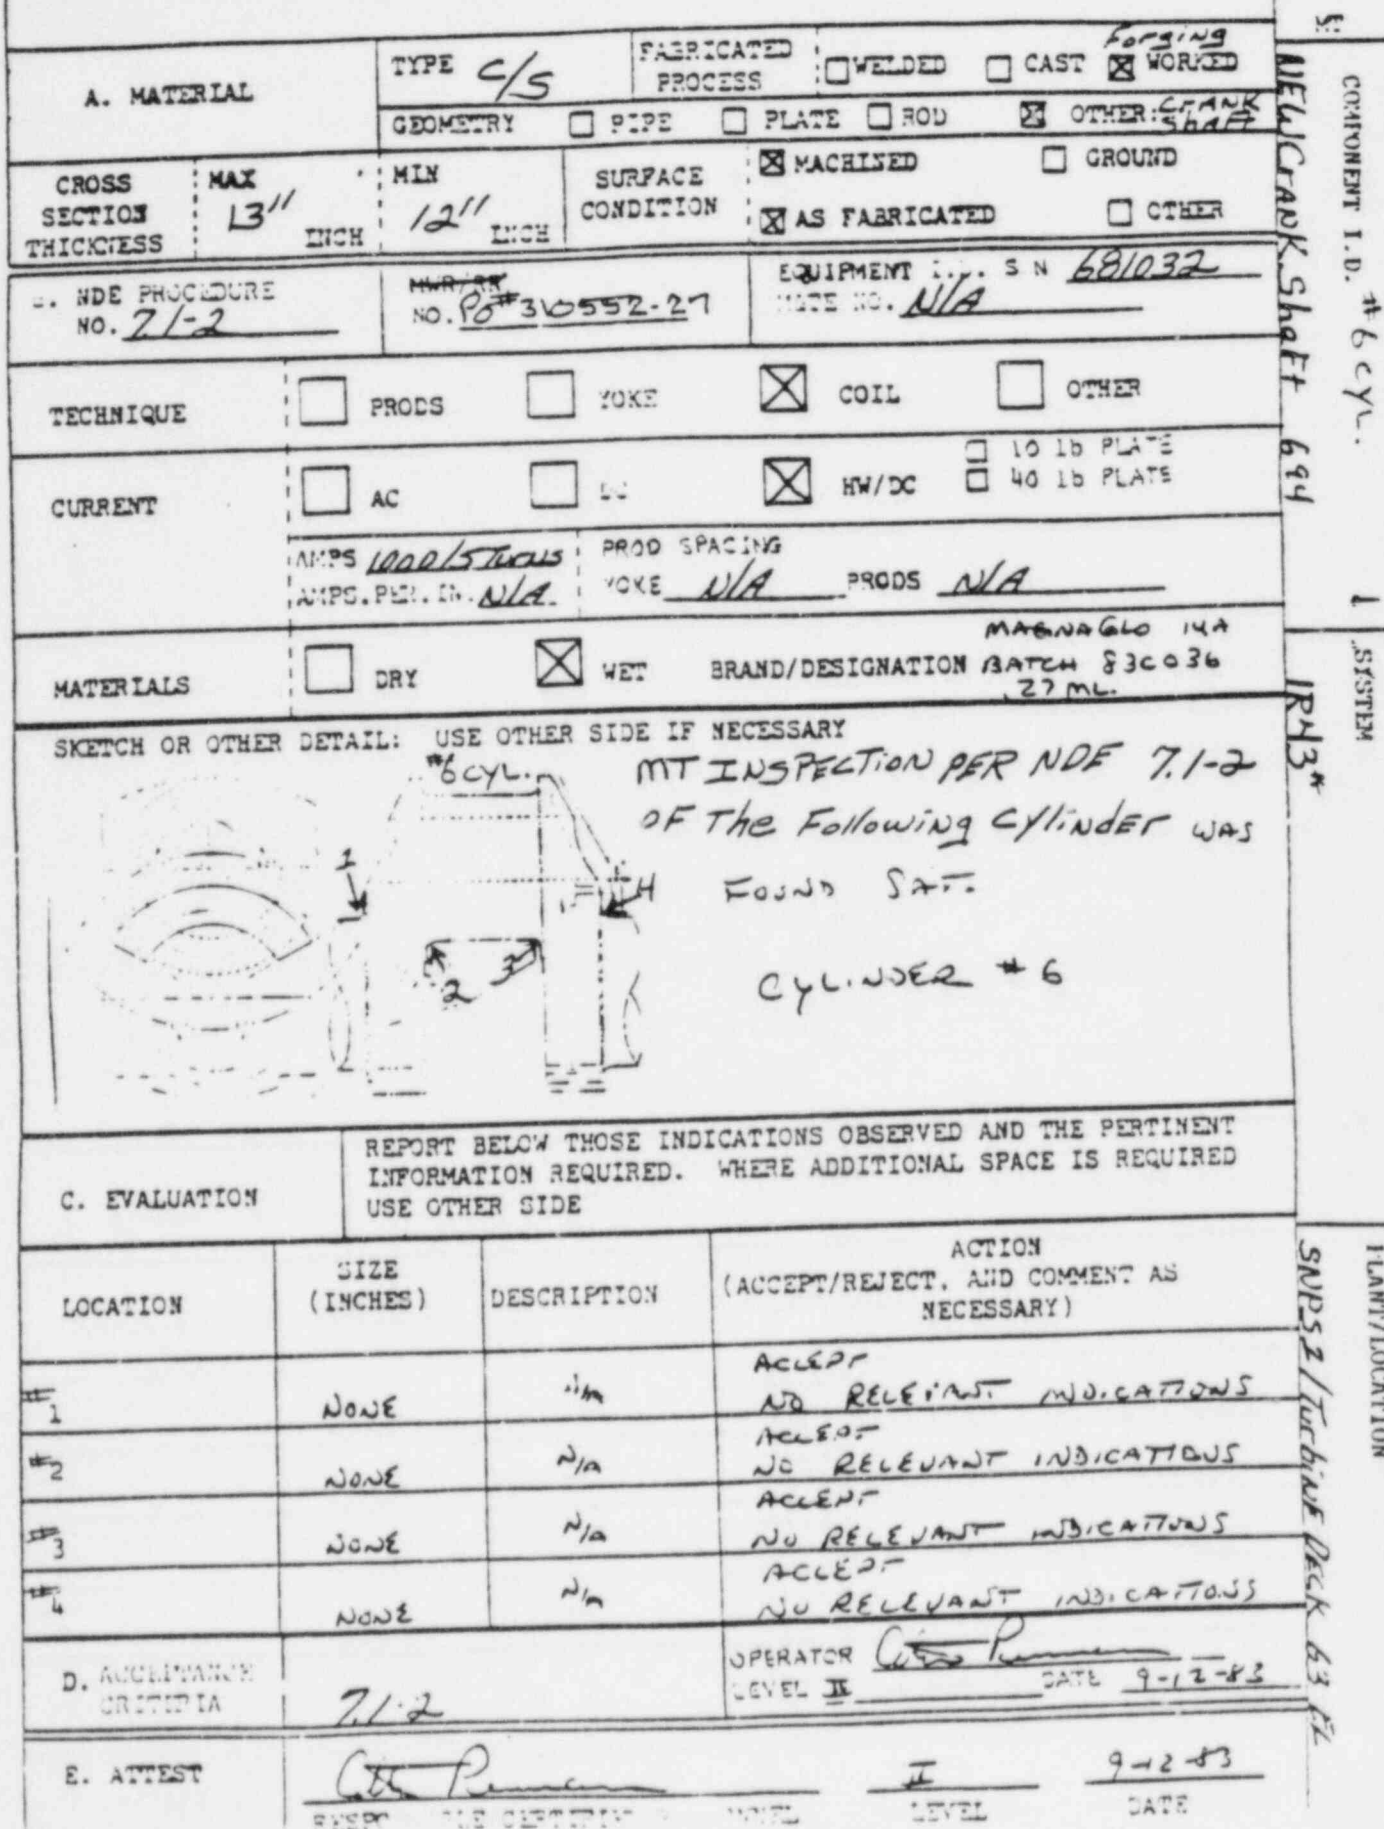 Forging
A. MATERIAL
TYPE C/S
FABRICATED PROCESS
WELDED
CAST
WORKED
GEOMETRY
PIPE
PLATE
ROD
OTHER: CRANK Shaft
CROSS SECTION THICKNESS
MAX 13" INCH
MIN 12" INCH
SURFACE CONDITION
MACHINED
GROUND
AS FABRICATED
OTHER
NDE PROCEDURE NO. 7.1-2
MWR/RR
NO. PO# 310552-27
EQUIPMENT I.D. S N 681032
MOTE NO. N/A
TECHNIQUE
PRODS
YOKE
COIL
OTHER
CURRENT
AC
DC
HW/DC
10 lb PLATE
40 lb PLATE
AMPS 1000/5 Turns
AMPS.PER.IN. N/A
PROD SPACING
YOKE N/A PRODS N/A
MATERIALS
DRY
WET
BRAND/DESIGNATION
MAGNAGLO 14A
BATCH 83C036
.27 ML.
SKETCH OR OTHER DETAIL: USE OTHER SIDE IF NECESSARY
#6 CYL.
1
2
3
4
MT INSPECTION PER NDE 7.1-2
OF The Following Cylinder WAS
FOUND SAT.
CYLINDER #6
C. EVALUATION
REPORT BELOW THOSE INDICATIONS OBSERVED AND THE PERTINENT
INFORMATION REQUIRED. WHERE ADDITIONAL SPACE IS REQUIRED
USE OTHER SIDE
LOCATION
SIZE (INCHES)
DESCRIPTION
ACTION
(ACCEPT/REJECT, AND COMMENT AS
NECESSARY)
#1 NONE N/A ACCEPT
NO RELEVANT INDICATIONS
#2 NONE N/A ACCEPT
NO RELEVANT INDICATIONS
#3 NONE N/A ACCEPT
NO RELEVANT INDICATIONS
#4 NONE N/A ACCEPT
NO RELEVANT INDICATIONS
D. ACCEPTANCE CRITERIA
7.1-2
OPERATOR
LEVEL II DATE 9-12-83
E. ATTEST
II
9-12-83
LEVEL
DATE
COMPONENT I.D. #6 CYL.
NEW Crank Shaft 694
SYSTEM
1R43*
PLANT/LOCATION
SNPS 1/Turbine Deck 63 EL